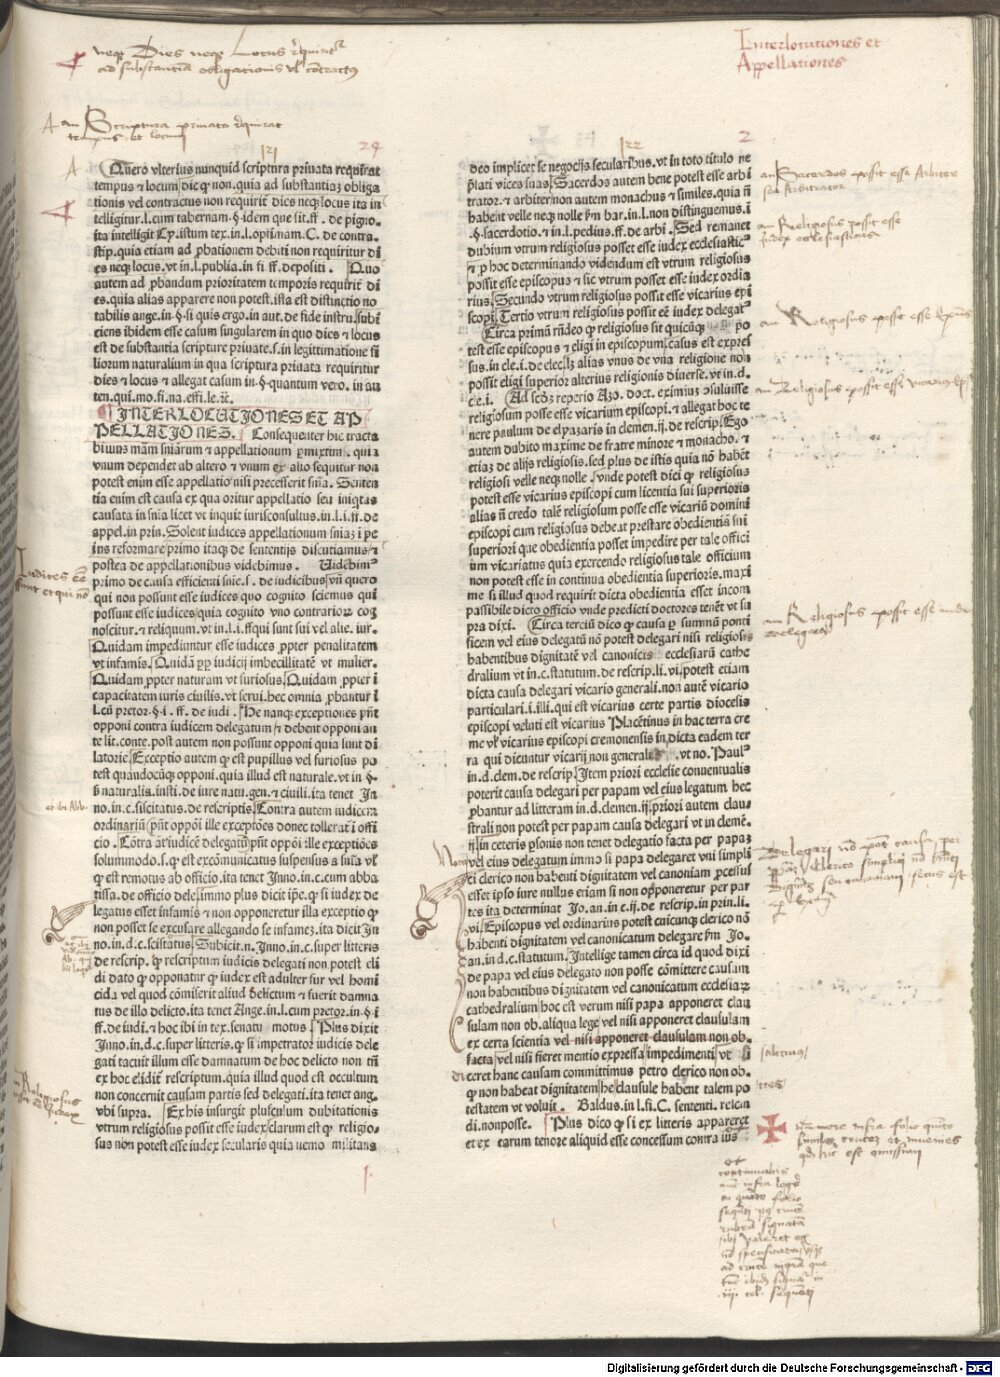 neque Dies neque Locus requirit
ad substantiam obligationis vel contractus
Interlocutiones et
Appellationes
an Scriptura privata requirat
tempus et locum
121
24
122
2
Quero vlterius nunquid scriptura priuata requirat
tempus ⁊ locum dic ꝙ non. quia ad substantiaꝫ obliga
tionis vel contractus non requirit dies neqꝫ locus ita in
telligitur. l. cum tabernam. §. idem que sit. ff. de pigno.
ita intelligit Cy. istum tex. in. l. optinam. C. de contra.
stip. quia etiam ad ꝓbationem debiti non requiritur di
es neqꝫ locus. vt in. l. publia. in fi ff. depositi. Quo
autem ad ꝓbandum prioritatem temporis requirit di
es. quia alias apparere non potest. ista est distinctio no
tabilis ange. in. §. si quis ergo. in aut. de fide instru. subij
ciens ibidem esse casum singularem in quo dies ⁊ locus
est de substantia scripture priuate. s. in legittimatione fi
liorum naturalium in qua scriptura priuata requiritur
dies ⁊ locus ⁊ allegat casum in. §. quantum vero. in au
ten. qui. mo. fi. na. effi. le. ꝛc̄.
INTERLOCUTIONES ET AP
PELLATIONES. Consequenter hic tracta
biuns mām sn̄iarum ⁊ appellationum ꝑmixtim. quia
vnum dependet ab altero ⁊ vnum ex alio sequitur non
potest enim esse appellatio nisi precesserit sn̄ia. Senten
tia enim est causa ex qua oritur appellatio seu iniqtas
causata in sn̄ia licet vt inquit iurisconsultus. in. l. i. ff. de
appel. in prin. Solent iudices appellationum sniaꝫ i pe
ius reformare primo itaqꝫ de sententijs discutiamus ⁊
postea de appellationibus videbimus. Uidebim⁹
primo de causa efficienti snie. s. de iudicibus vn̄ quero
qui non possunt esse iudices quo cognito sciemus qui
possunt esse iudices quia cognito vno contrariorꝫ cog
noscitur. ⁊ reliquum. vt in. l. i. ff qui sunt sui vel alie. iur.
Quidam impediuntur esse iudices ꝓpter penalitatem
vt infamis. Quidā ꝓp iudicij imbecillitatē vt mulier.
Quidam ꝓpter naturam vt furiosus. Quidam ꝓpter i
capacitatem iuris ciuilis. vt serui. hec omnia ꝓbantur i
l. cū pretor. §. i. ff. de iudi. He nanqꝫ exceptiones pn̄t
opponi contra iudicem delegatum ⁊ debent opponi an
te lit. conte. post autem non possunt opponi quia sunt di
latorie. Exceptio autem ꝙ est pupillus vel furiosus po
test quandocūqꝫ opponi. quia illud est naturale. vt in §.
ß naturalis. insti. de iure natu. gen. ⁊ ciuili. ita tenet In
no. in. c. sciscitatus. de rescriptis. Contra autem iudicem
ordinariū pn̄t oppōi ille exceptōes donec tollerat i offi
cio. Cōtra āt iudicē delegatū pn̄t oppōi ille exceptiōes
solummodo. s. ꝙ est excōmunicatus suspensus a sn̄ia vl
ꝙ est remotus ab officio. ita tenet Inno. in. c. cum abba
tissa. de officio dele. immo plus dicit ipse. ꝙ si iudex de
legatus esset infamis ⁊ non opponeretur illa exceptio ꝙ
non posset se excusare allegando se infameꝫ. ita dicit In
no. in. d. c. sciscitatus. Subicit. n. Inno. in. c. super litteris
de rescrip. ꝙ rescriptum iudicis delegati non potest eli
di dato ꝙ opponatur ꝙ iudex est adulter fur vel homi
cida vel quod cōmiserit aliud delictum ⁊ fuerit damna
tus de illo delicto. ita tenet Ange. in. l. cum pretor. in. §. i
ff. de iudi. ⁊ hoc ibi in tex. senatu motus. Plus dixit
Inno. in. d. c. super litteris. ꝙ si impetrator iudicio dele
gati tacuit illum esse damnatum de hoc delicto non tn̄
ex hoc elidit̄ rescriptum. quia illud quod est occultum
non concernit causam partis sed delegati. ita tenet ang.
vbi supra. Ex his insurgit plusculum dubitationis
vtrum religiosus possit esse iudex clarum est ꝙ religio
sus non potest esse iudex secularis quia nemo militans
deo implicet se negocijs secularibus. vt in toto titulo ne
p̄lati vices suas. Sacerdos autem bene potest esse arbi
trator. ⁊ arbiter non autem monachus ⁊ similes. quia n̄
habent velle neqꝫ nolle ẜm bar. in. l. non distinguemus. i
§. sacerdotio. ⁊ in. l. pedius. ff. de arbi. Sed remanet
dubium vtrum religiosus posset esse iudex ecclesiastic⁹
⁊ ꝓ hoc determinando videndum est vtrum religiosus
possit esse episcopus ⁊ sic vtrum posset esse iudex ordia
rius. Secundo vtrum religiosus possit esse vicarius epi
scopi. Tertio vtrum religiosus possit eē iudex delegat⁹
Circa primū rn̄deo ꝙ religiosus sit quicūqꝫ po
test esse episcopus ⁊ eligi in episcopum. casus est expres
sus. in cle. i. de elec. lꝫ alias vnus de vna religione non
possit eligi superior alterius religionis diuerse. vt in. d.
cle. i. Ad secōꝫ reperio Azo. doct. eximiuꝫ ↄsuluisse
religiosum posse esse vicarium episcopi. ⁊ allegat hoc te
nere paulum de elyazaris in clemen. ij. de rescrip. Ego
autem dubito maxime de fratre minore ⁊ monacho. ⁊
etiaꝫ de alijs religiosis. sed plus de istis quia nō habēt
religiosi velle neqꝫ nolle. vnde potest dici ꝙ religiosus
potest esse vicarius episcopi cum licentia sui superioris
alias n̄ credo talē religiosum posse esse vicariū domini
episcopi cum religiosus debeat prestare obedientiā sui
superiori que obedientia posset impedire per tale offici
um vicariatus quia exercendo religiosus tale officium
non potest esse in continua obedientia superioris. maxi
me si illud quod requirit dicta obedientia esset incom
passibile dicto officio vnde predicti doctores tenēt vt su
pra dixi. Circa terciū dico ꝙ causa ꝑ summū ponti
ficem vel eius delegatū nō potest delegari nisi religiosis
habentibus dignitatē vel canonicis ecclesiarū cathe
dralium vt in. c. statutum. de rescrip. li. vi. potest etiam
dicta causa delegari vicario generali. non autē vicario
particulari. i. illi. qui est vicarius certe partis diocesis
episcopi veluti est vicarius Placētinus in hac terra cre
me vl vicarius episcopi cremonensis in dicta eadem ter
ra qui dicuntur vicarij non generales. vt no. Paul⁹
in. d. clem. de rescrip. Item priori ecclesie conuentualis
poterit causa delegari per papam vel eius legatum hec
ꝓbantur ad litteram in. d. clemen. ij. priori autem clau
strali non potest per papam causa delegari vt in clemē.
ij. in ceteris psonis non tenet delegatio facta per papaꝫ
vel eius delegatum immo si papa delegaret vni simpli
ci clerico non habenti dignitatem vel canoniam ꝓcessus
esset ipso iure nullus etiam si non opponeretur per par
tes ita determinat Jo. an. in c. ij. de rescrip. in prin. li.
vi. Episcopus vel ordinarius potest cuicunqꝫ clerico nō
habenti dignitatem vel canonicatum delegare ẜm Jo.
an. in. d. c. statutum. Intellige tamen circa id quod dixi
de papa vel eius delegato non posse cōmittere causam
non habentibus dignitatem vel canonicatum ecclesiaꝝ
cathedralium hoc est verum nisi papa apponeret clau
sulam non ob. aliqua lege vel nisi apponeret clausulam
ex certa scientia vel nisi apponeret clausulam non ob.
facta vel nisi fieret mentio expressa impedimenti vt si
diceret hanc causam committimus petro clerico non ob.
ꝙ non habeat dignitatem he clausule habent talem po
testatem vt voluit. Baldus. in l. fi. C. sententi. rescin
di. non posse. Plus dico ꝙ si ex litteris appareret
et ex earum tenore aliquid esse concessum contra ius
an Sacerdos possit esse Arbiter
seu Arbitrator
an Religiosus possit esse
Iudex ecclesiasticus
an Religiosus possit esse Episcopus
an Religiosus possit esse vicarius Episcopi
an Religiosus possit esse iudex
Delegatus
Digitalisierung gefördert durch die Deutsche Forschungsgemeinschaft - DFG